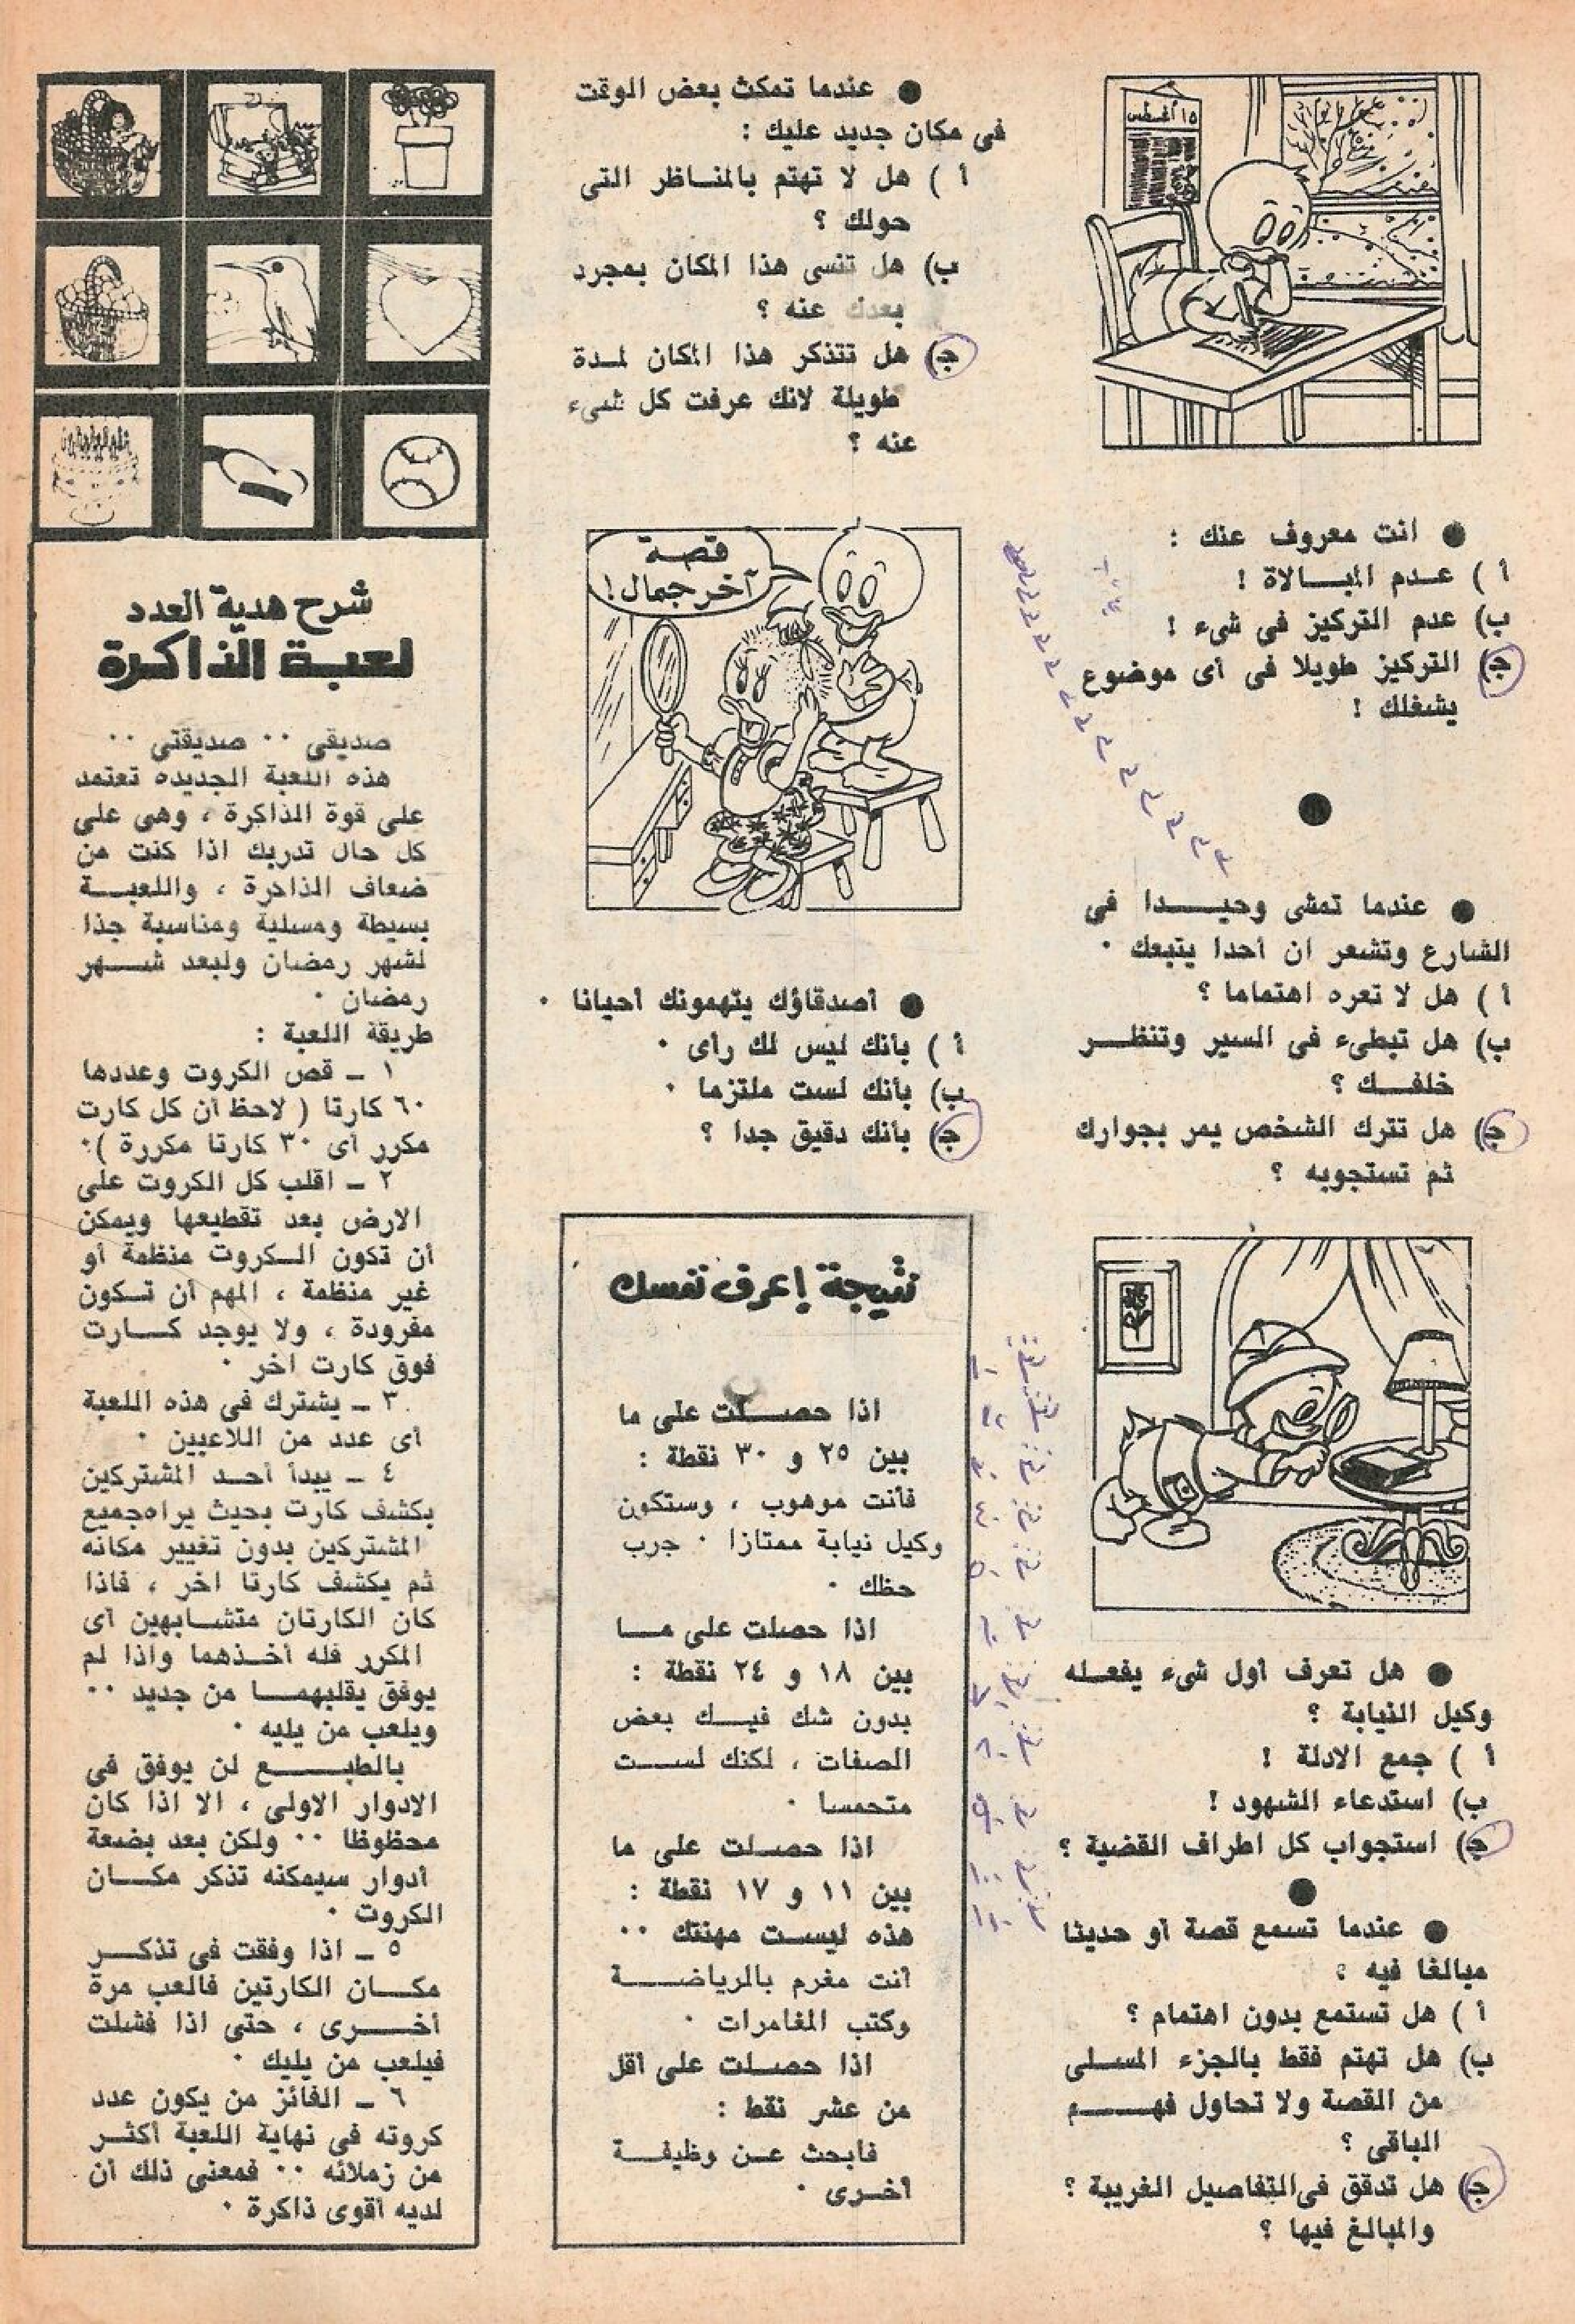 ١٥ أغسطس
● انت معروف عنك :
أ ) عدم المبالاة !
ب) عدم التركيز فى شىء !
ج) التركيز طويلا فى أى موضوع
يشغلك !
●
● عندما تمشى وحيدا فى
الشارع وتشعر ان أحدا يتبعك ٠
أ ) هل لا تعره اهتماما ؟
ب) هل تبطىء فى السير وتنظر
خلفك ؟
ج) هل تترك الشخص يمر بجوارك
ثم تستجوبه ؟
● هل تعرف أول شىء يفعله
وكيل النيابة ؟
أ ) جمع الادلة !
ب) استدعاء الشهود !
ج) استجواب كل اطراف القضية ؟
●
● عندما تسمع قصة أو حديثا
مبالغا فيه ؟
أ ) هل تستمع بدون اهتمام ؟
ب) هل تهتم فقط بالجزء المسلى
من القصة ولا تحاول فهم
الباقى ؟
ج) هل تدقق فى التفاصيل الغريبة ؟
والمبالغ فيها ؟
● عندما تمكث بعض الوقت
فى مكان جديد عليك :
أ ) هل لا تهتم بالمناظر التى
حولك ؟
ب) هل تنسى هذا المكان بمجرد
بعدك عنه ؟
ج) هل تتذكر هذا المكان لمدة
طويلة لانك عرفت كل شىء
عنه ؟
قصة
آخر جمال !
● أصدقاؤك يتهمونك أحيانا ٠
أ ) بأنك ليس لك رأى ٠
ب) بأنك لست ملتزما ٠
ج) بأنك دقيق جدا ؟
نتيجة إعرف نفسك
اذا حصلت على ما
بين ٢٥ و ٣٠ نقطة :
فأنت موهوب ، وستكون
وكيل نيابة ممتازا ٠ جرب
حظك ٠
اذا حصلت على ما
بين ١٨ و ٢٤ نقطة :
بدون شك فيك بعض
الصفات ، لكنك لست
متحمسا ٠
اذا حصلت على ما
بين ١١ و ١٧ نقطة :
هذه ليست مهنتك ٠٠
أنت مغرم بالرياضة
وكتب المغامرات ٠
اذا حصلت على أقل
من عشر نقط :
فابحث عن وظيفة
أخرى ٠
شرح هدية العدد
لعبة الذاكرة
صديقى ٠٠ صديقتى ٠٠
هذه اللعبة الجديده تعتمد
على قوة الذاكرة ، وهى على
كل حال تدربك اذا كنت من
ضعاف الذاكرة ، واللعبة
بسيطة ومسلية ومناسبة جذا
لشهر رمضان ولبعد شهر
رمضان ٠
طريقة اللعبة :
١ ـ قص الكروت وعددها
٦٠ كارتا ( لاحظ أن كل كارت
مكرر أى ٣٠ كارتا مكررة )٠
٢ ـ اقلب كل الكروت على
الارض بعد تقطيعها ويمكن
أن تكون الكروت منظمة أو
غير منظمة ، المهم أن تكون
مفرودة ، ولا يوجد كارت
فوق كارت اخر ٠
٣ ـ يشترك فى هذه اللعبة
أى عدد من اللاعبين ٠
٤ ـ يبدأ أحد المشتركين
بكشف كارت بحيث يراه جميع
المشتركين بدون تغيير مكانه
ثم يكشف كارتا اخر ، فاذا
كان الكارتان متشابهين أى
المكرر فله أخذهما واذا لم
يوفق يقلبهما من جديد ٠٠
ويلعب من يليه ٠
بالطبع لن يوفق فى
الادوار الاولى ، الا اذا كان
محظوظا ٠٠ ولكن بعد بضعة
أدوار سيمكنه تذكر مكان
الكروت ٠
٥ ـ اذا وفقت فى تذكر
مكان الكارتين فالعب مرة
أخرى ، حتى اذا فشلت
فيلعب من يليك ٠
٦ ـ الفائز من يكون عدد
كروته فى نهاية اللعبة أكثر
من زملائه ٠٠ فمعنى ذلك أن
لديه أقوى ذاكرة ٠